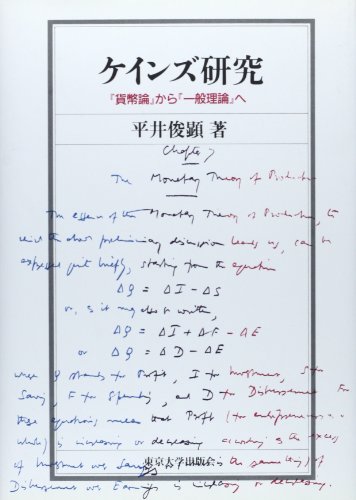 ケインズ研究
『貨幣論』から『一般理論』へ
平井俊顕 著
Chapter 7
The Monetary Theory of Production
The essence of the Monetary Theory of Production, to
which the above preliminary discussion leads us, can be
expressed quite briefly, starting from the equation
ΔQ = ΔI − ΔS
or, as it may also be written,
ΔQ = ΔI + ΔF − ΔE
or ΔQ = ΔD − ΔE
where Q stands for Profit, I for Investment, S for
Saving, F for Spending, and D for Disbursement. For
these equations mean that Profit (for entrepreneurs as a
whole) is increasing or decreasing according as the excess
of Investment over Saving is the same thing) of
Disbursement over Earnings is increasing or decreasing
東京大学出版会